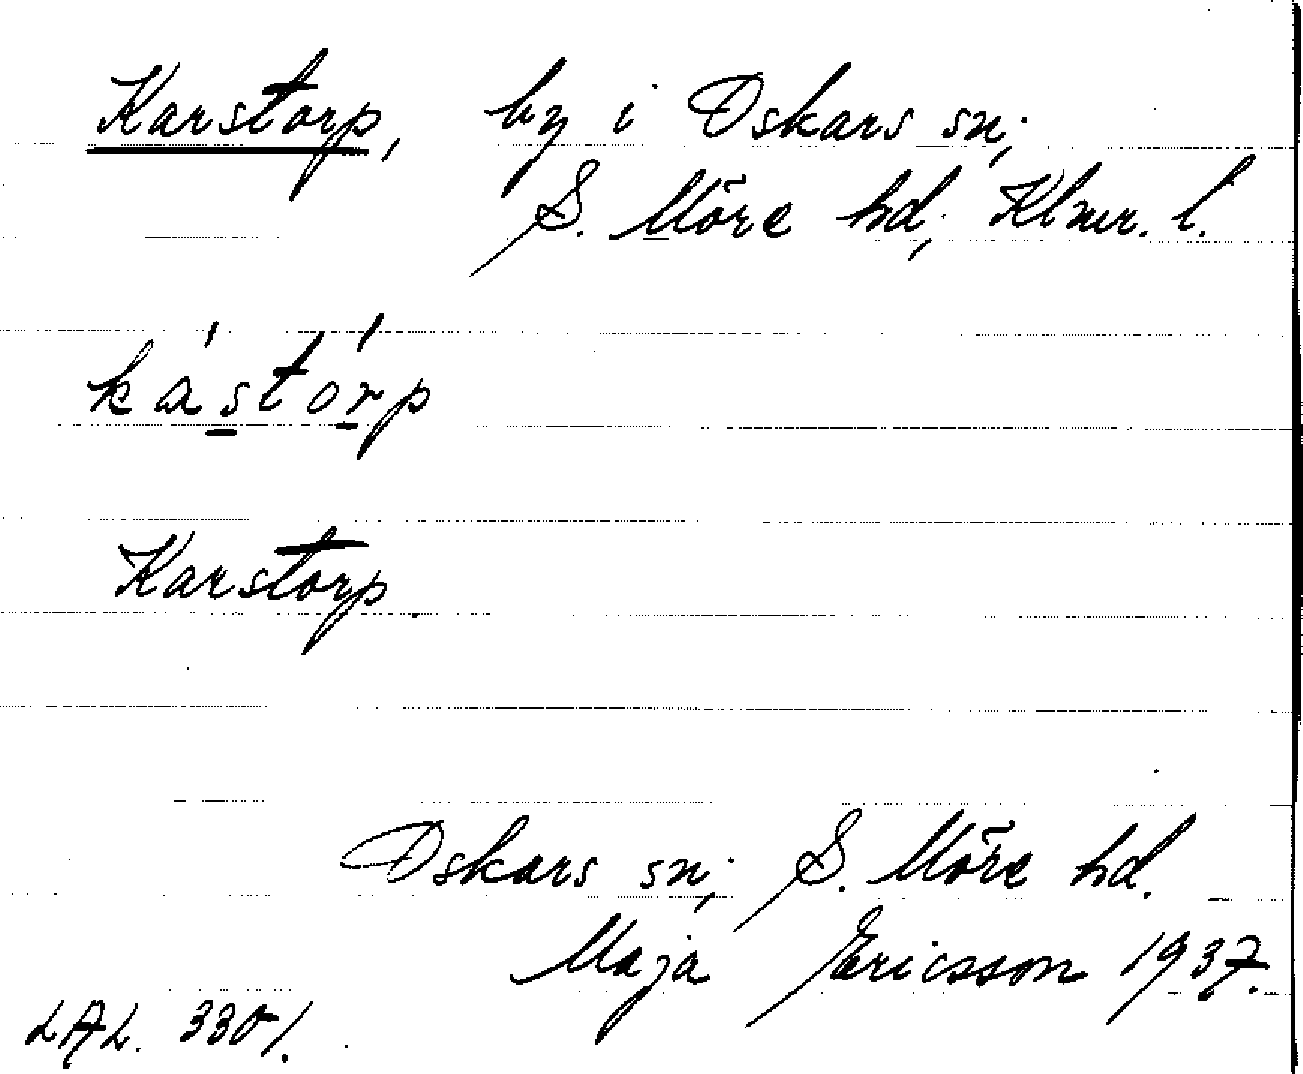 Karstorp, by i Oskars sn;
S. Möre hd; Klmr. l.
ka's̲to'r̲p
Karstorp
Oskars sn; S. Möre hd.
Maja Ericsson 1937.
LAL. 3301.